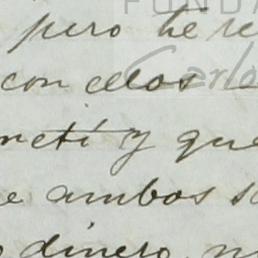 FUNDA
pero he re
con ellos
Carlo
metí y que
e ambos s
dinero, m